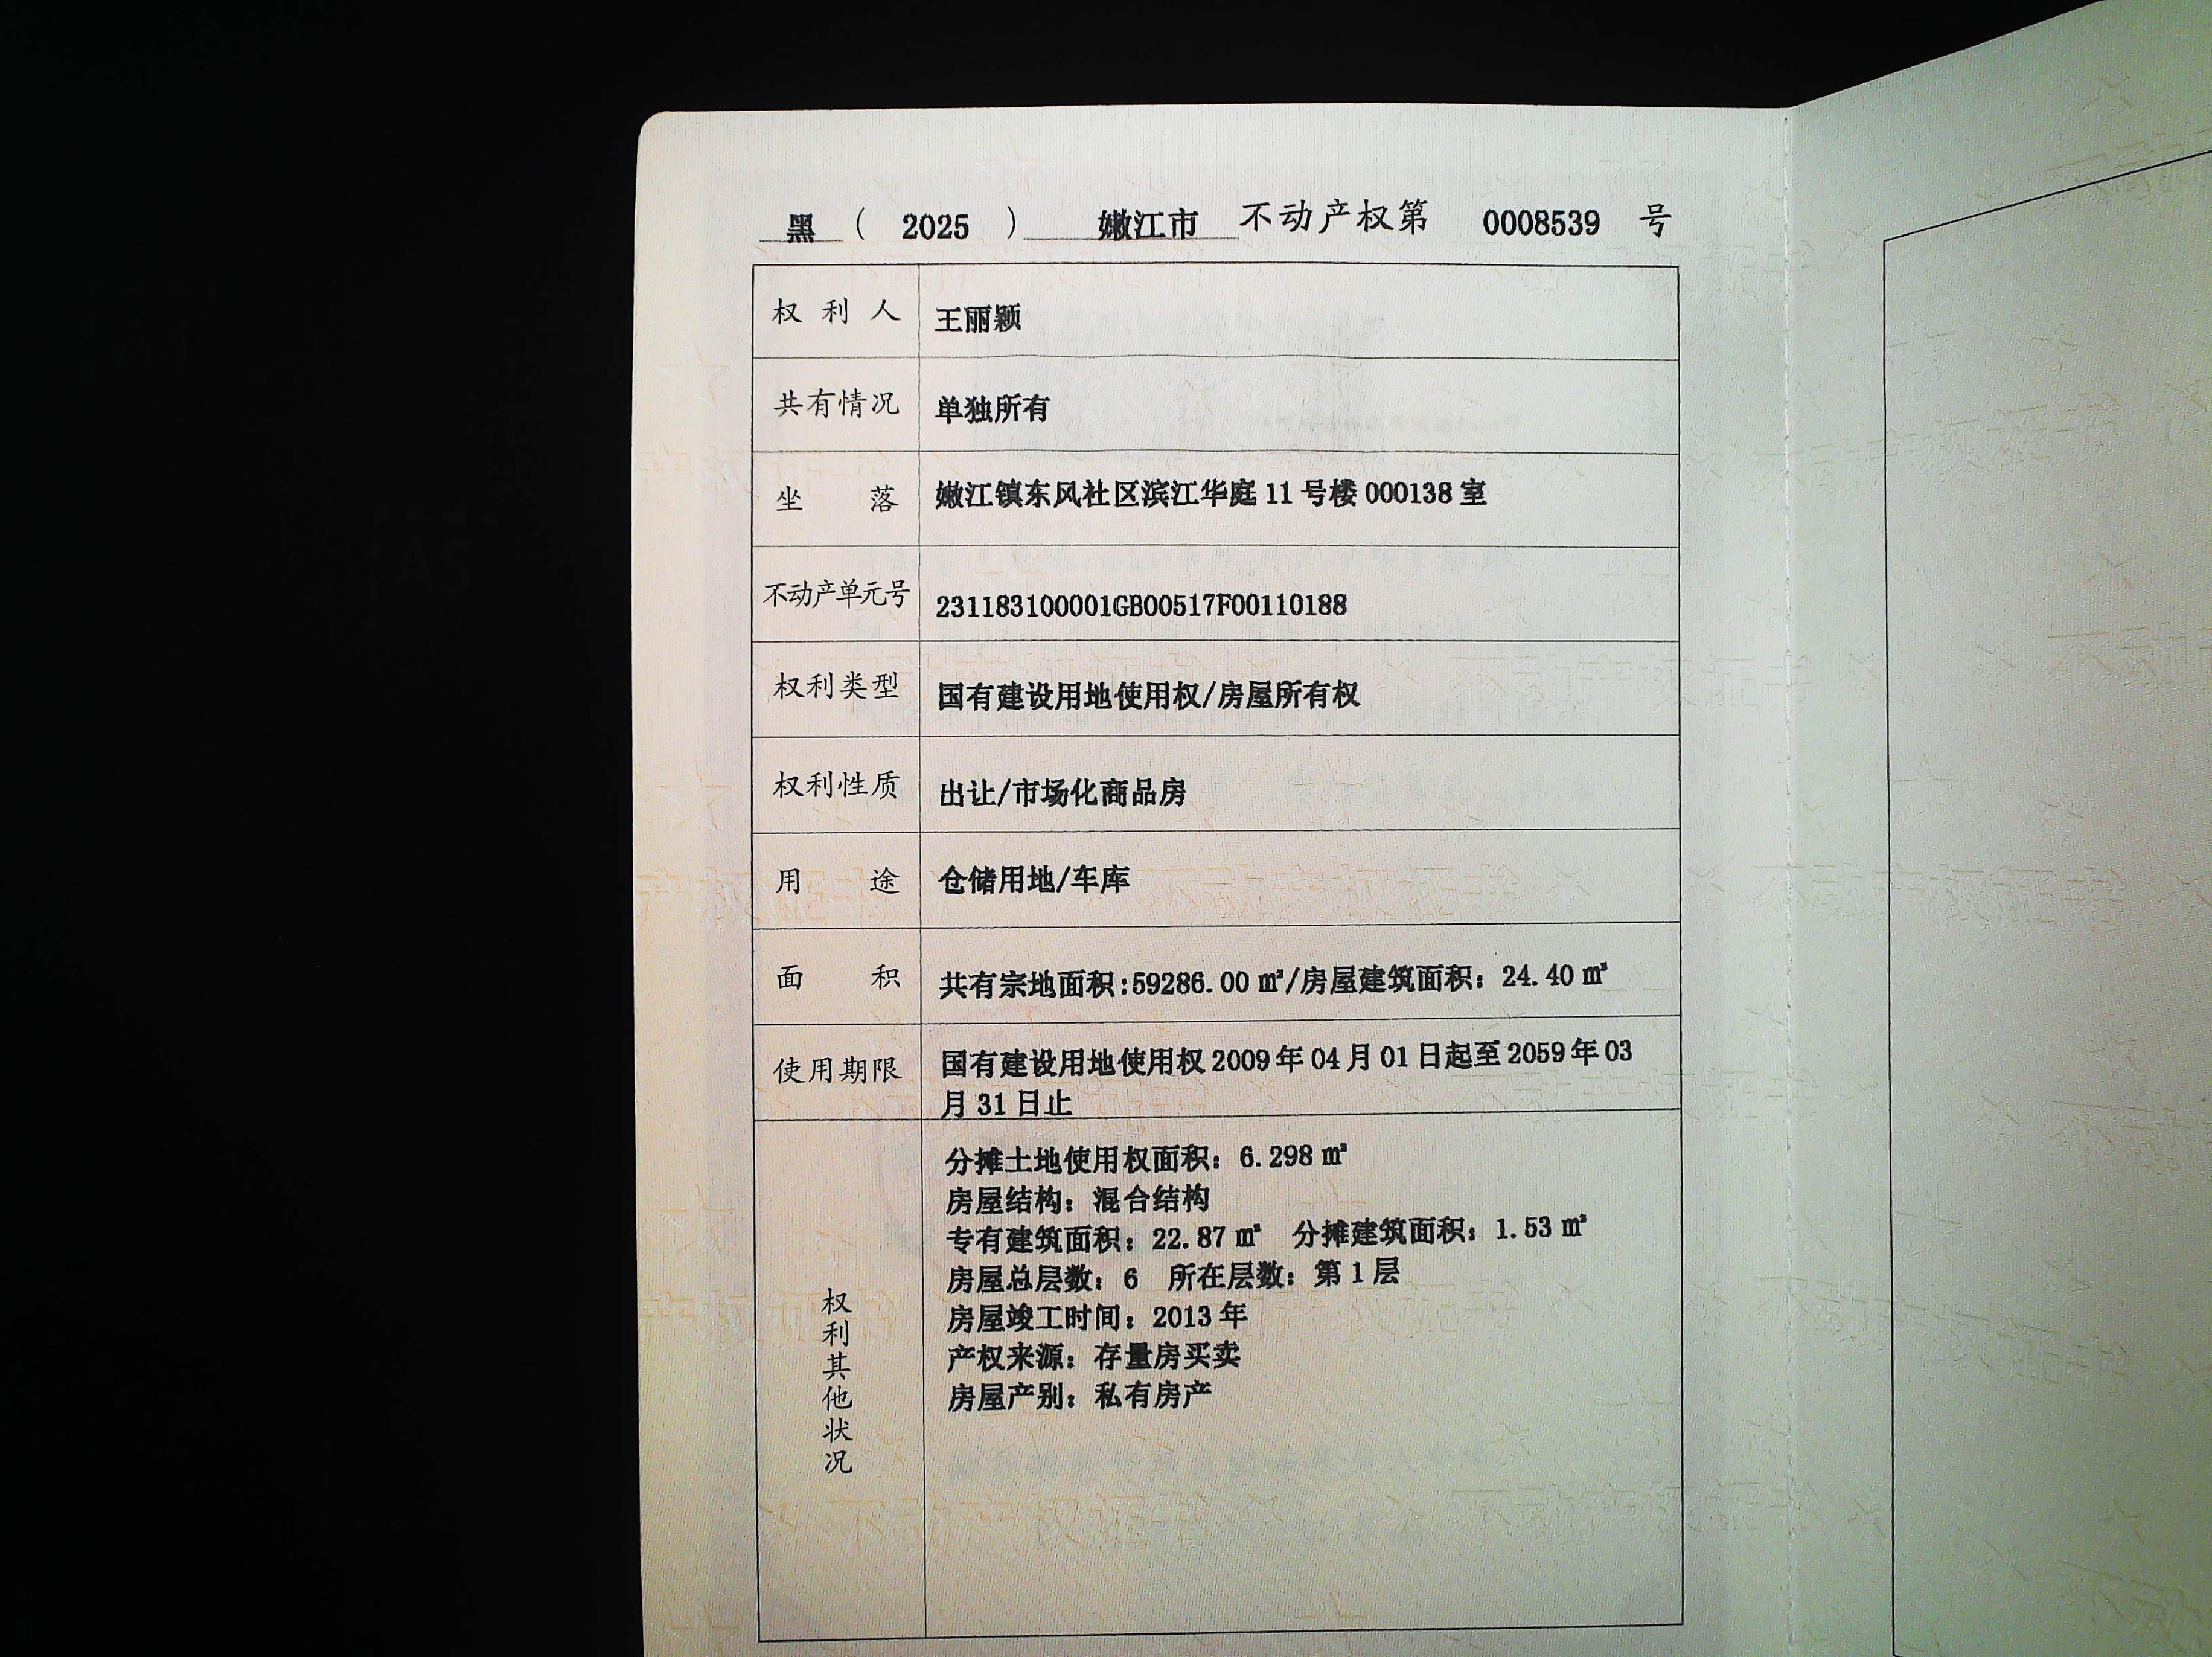 黑 ( 2025 ) 嫩江市 不动产权第 0008539 号
权利人 王丽颖
共有情况 单独所有
坐落 嫩江镇东风社区滨江华庭 11 号楼 000138 室
不动产单元号 231183100001GB00517F00110188
权利类型 国有建设用地使用权/房屋所有权
权利性质 出让/市场化商品房
用途 仓储用地/车库
面积 共有宗地面积:59286.00 ㎡/房屋建筑面积：24.40 ㎡
使用期限 国有建设用地使用权 2009 年 04 月 01 日起至 2059 年 03
月 31 日止
权利其他状况
分摊土地使用权面积：6.298 ㎡
房屋结构：混合结构
专有建筑面积：22.87 ㎡ 分摊建筑面积：1.53 ㎡
房屋总层数：6 所在层数：第 1 层
房屋竣工时间：2013 年
产权来源：存量房买卖
房屋产别：私有房产